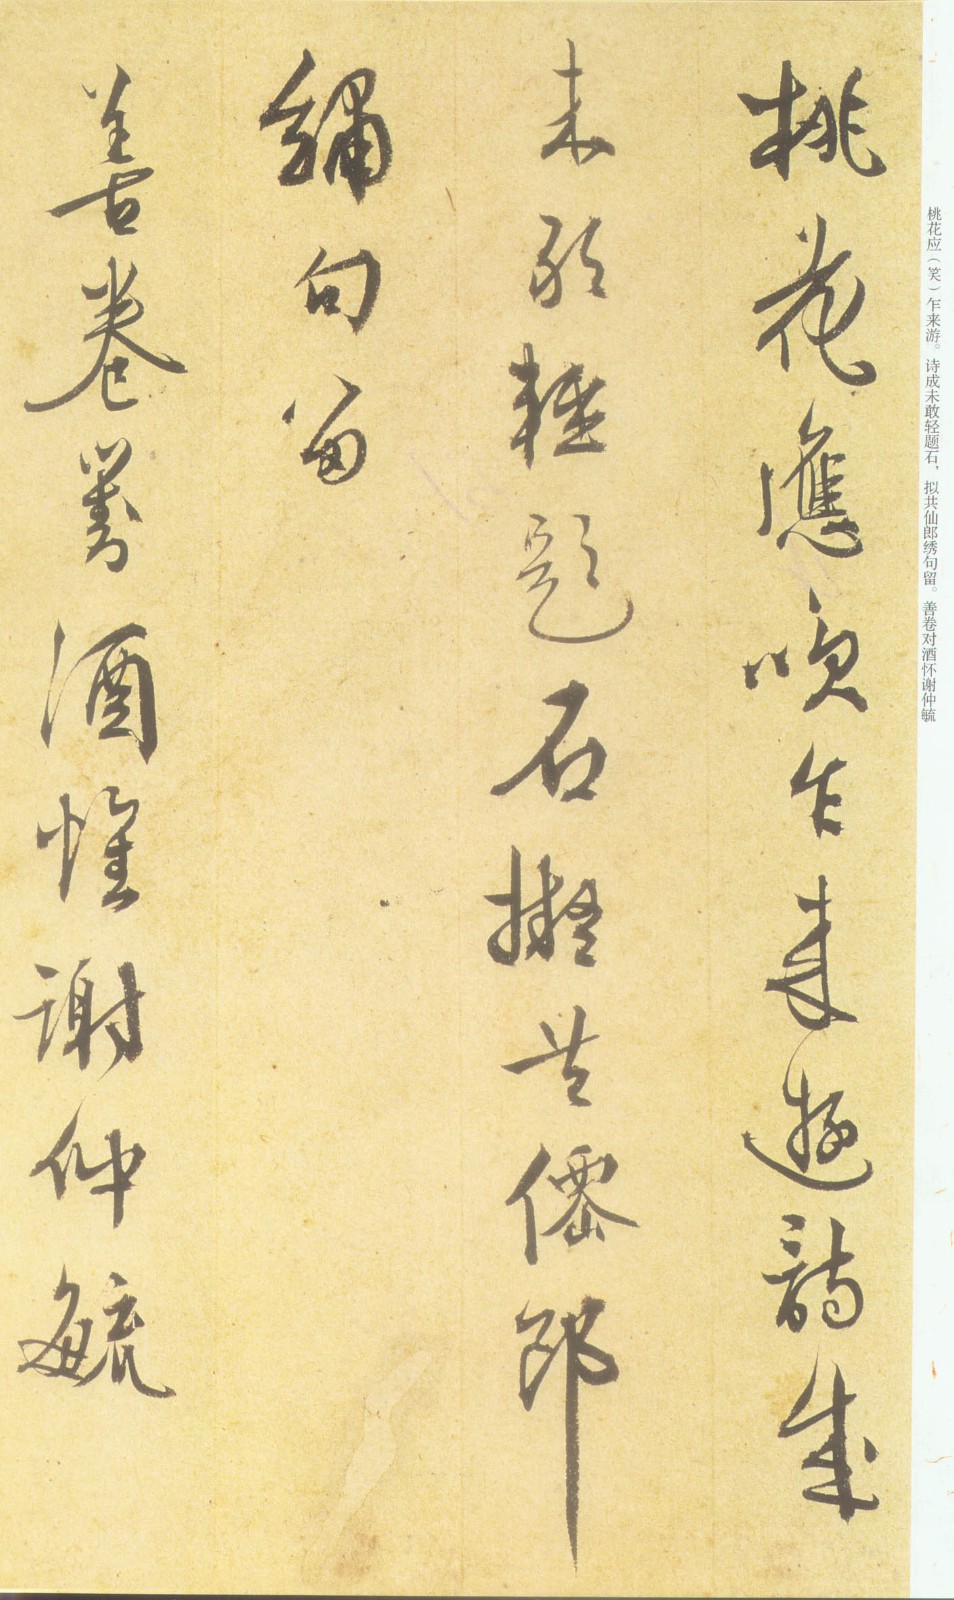 桃花应（笑）乍来游。诗成未敢轻题石，拟共仙郎绣句留。善卷对酒怀谢仲毓
桃花應咲乍来遊詩成
未敢輕題石擬共僊郎
繡句留
善卷對酒懷謝仲毓